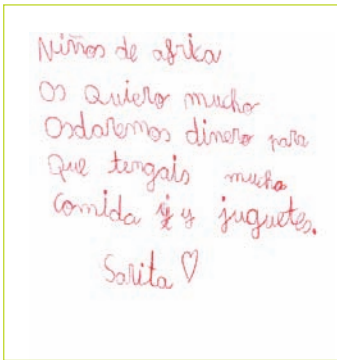 Niños de afrika
Os Quiero mucho
Osdaremos dinero para
Que tengais mucha
Comida y y juguetes.
Sarita ♡